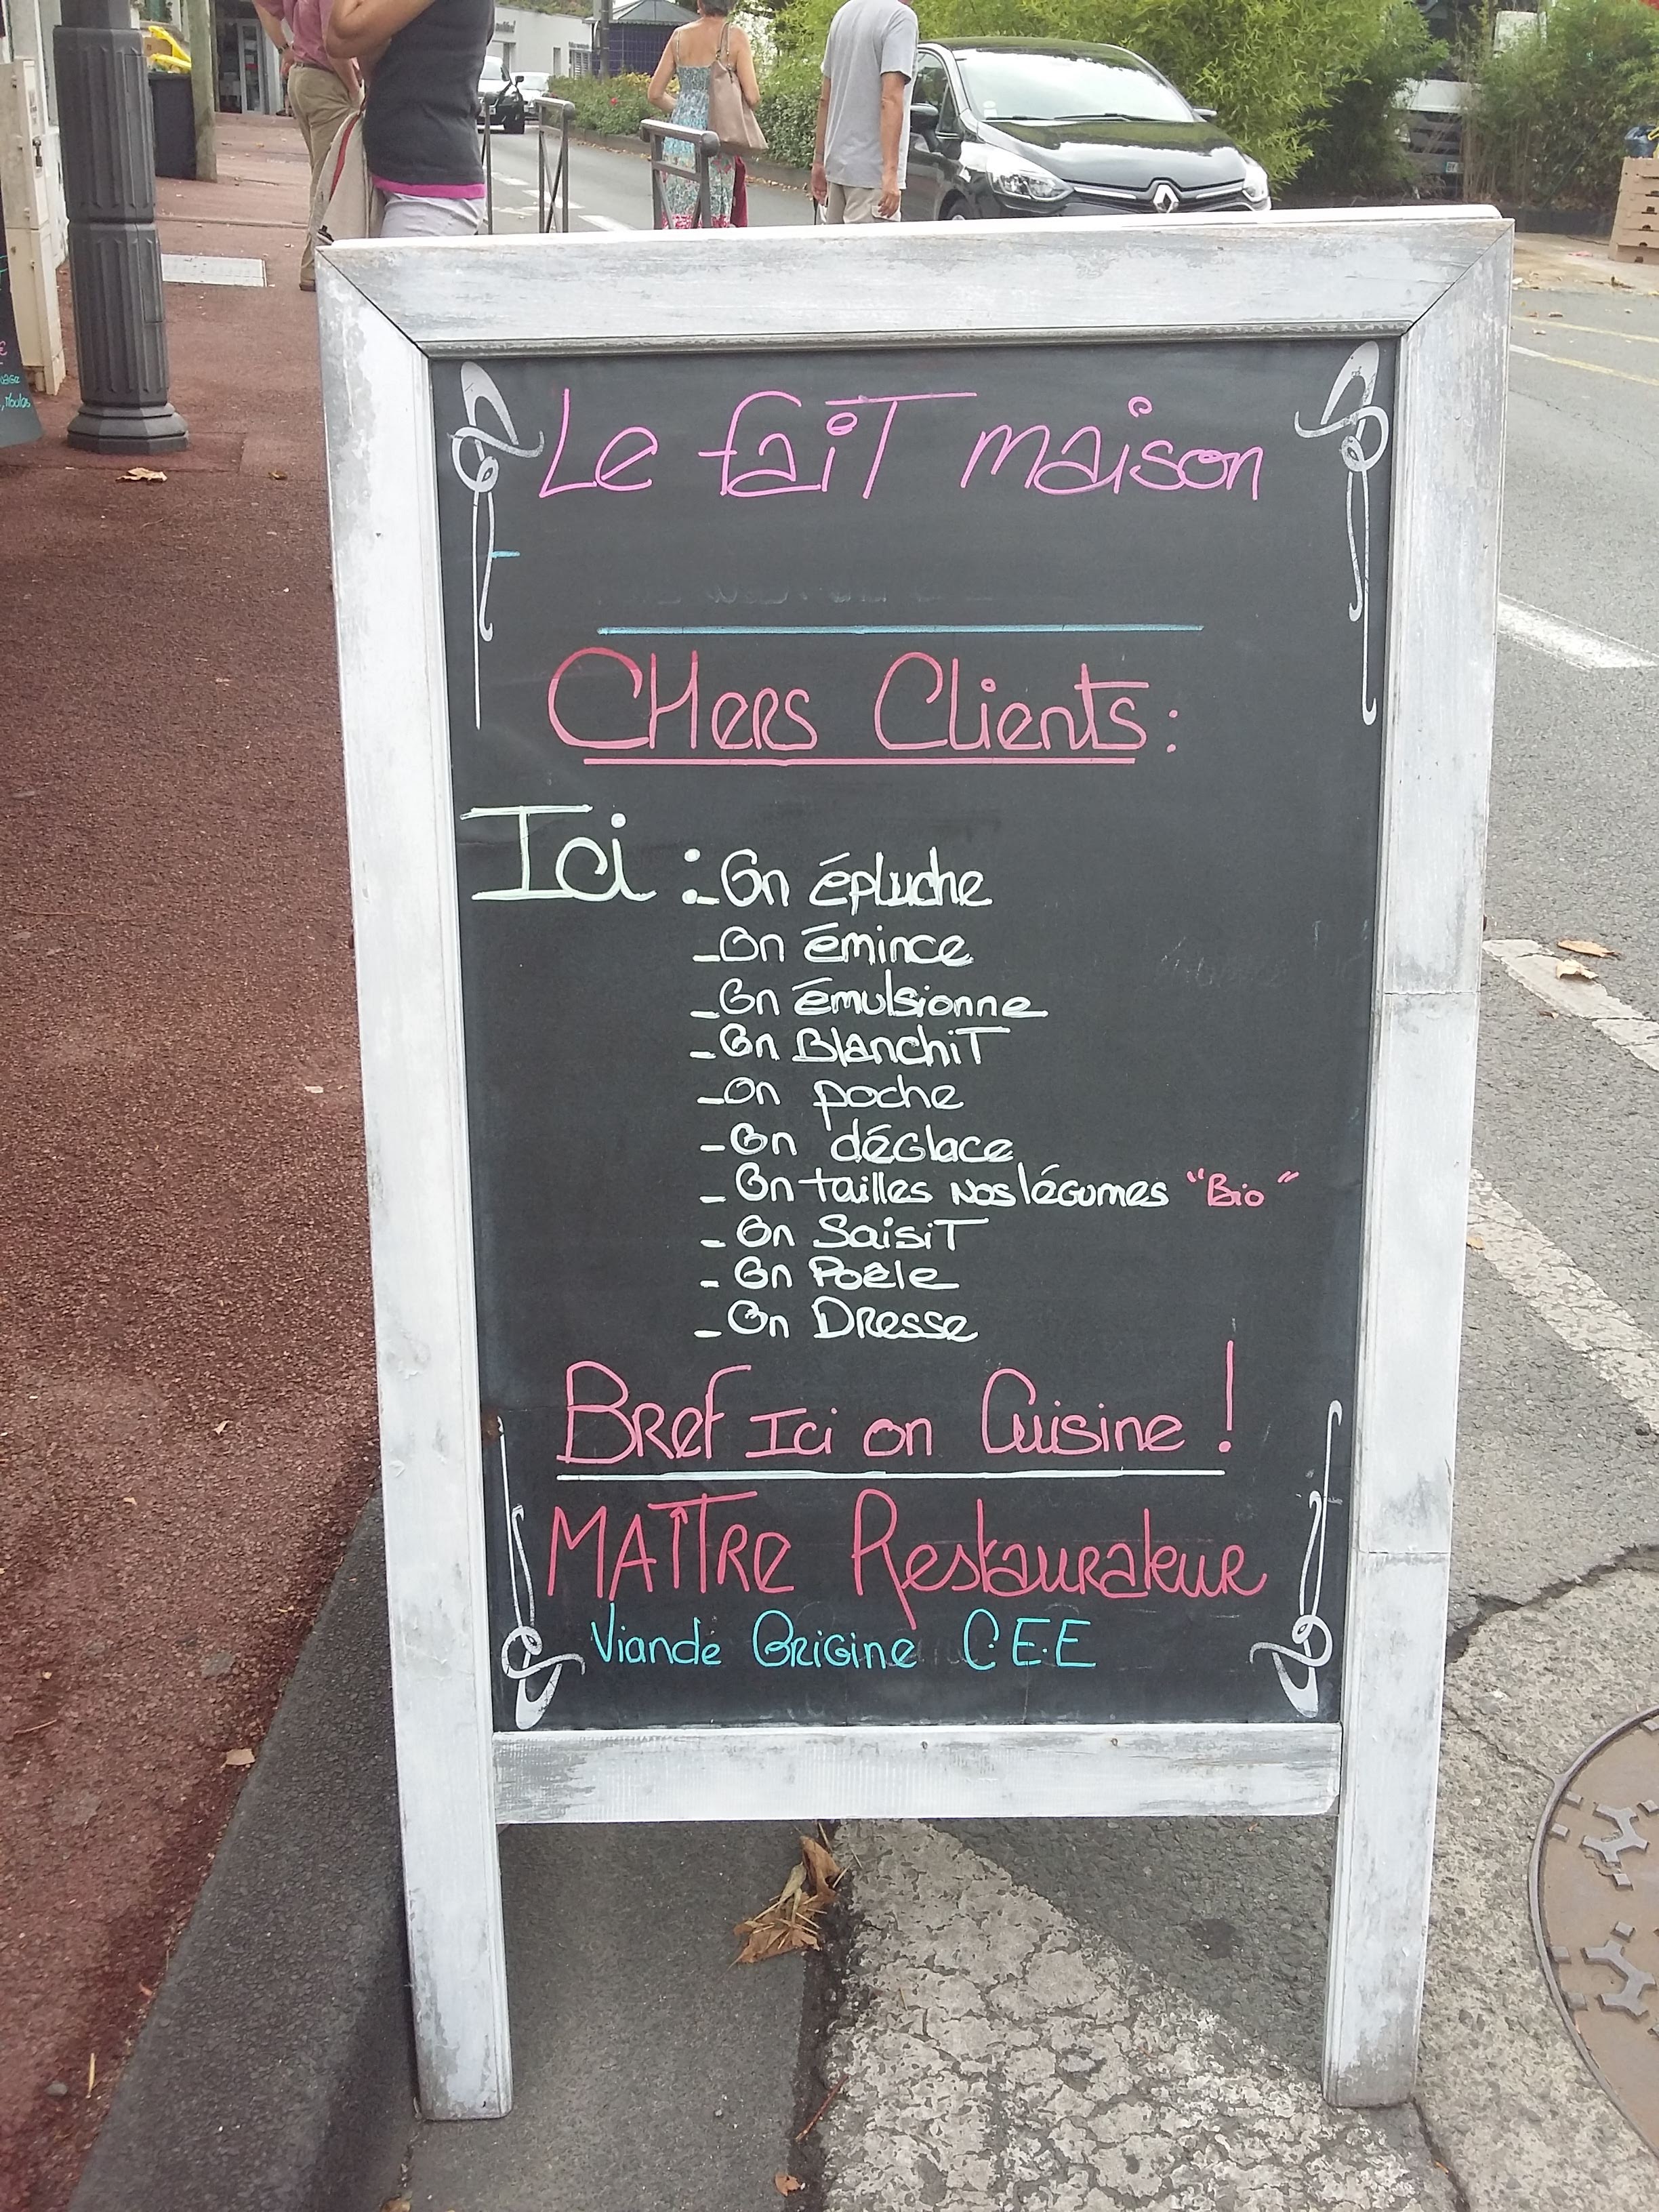 Le faiT maison
CHers Clients :
Ici : - On épluche
- On émince
- On émulsionne
- On BlanchiT
- On poche
- On déglace
- On tailles nos légumes "Bio"
- On SaisiT
- On Poêle
- On Dresse
Bref Ici on Cuisine !
MAÎTRe Restaurateur
Viande Origine C.E.E